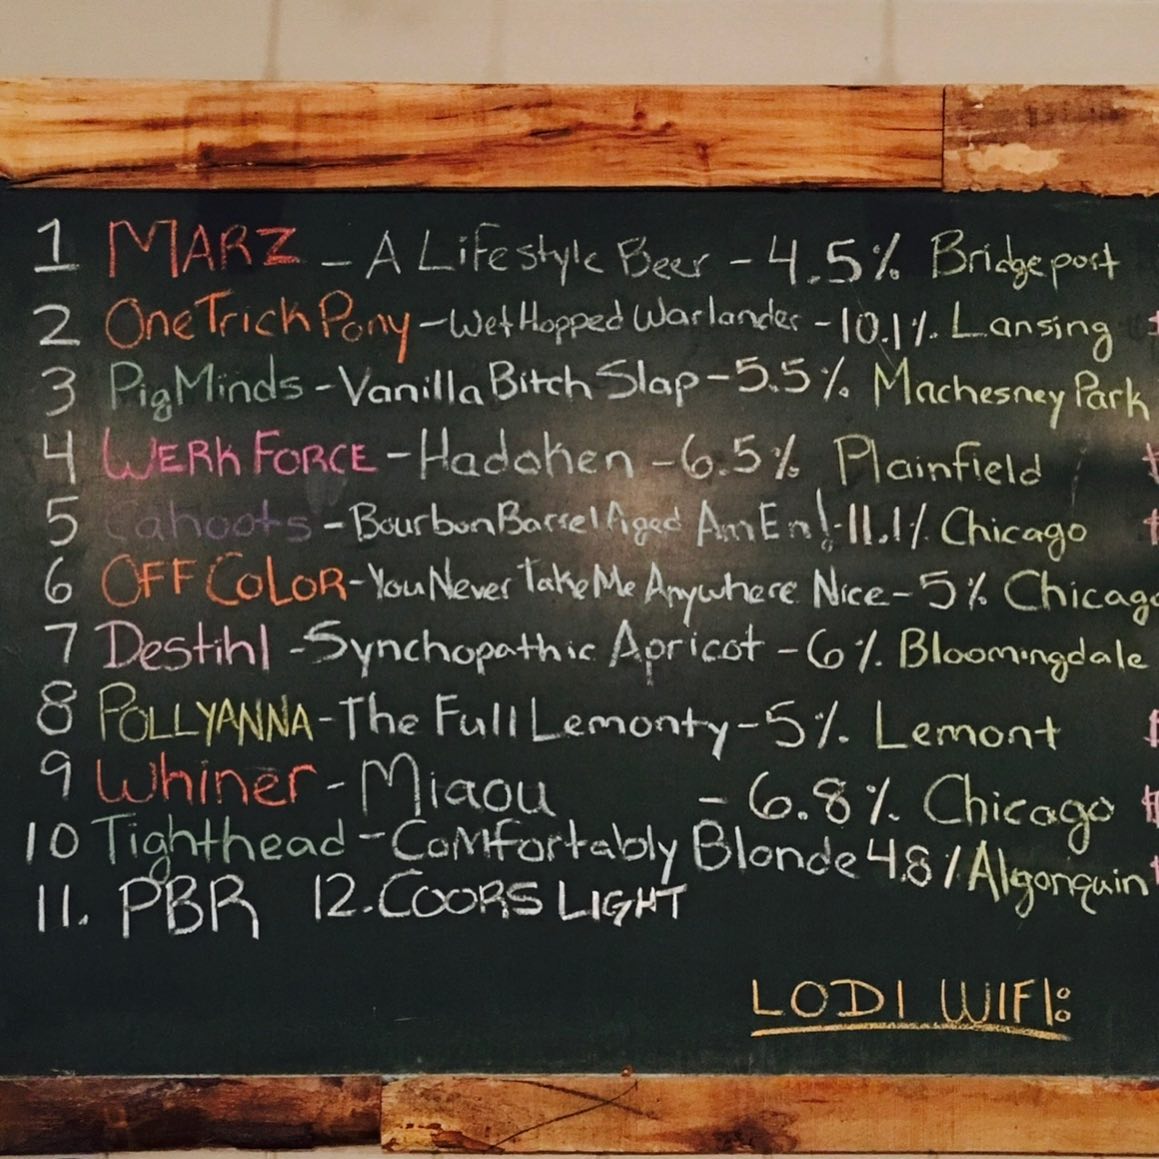 1 MARZ - A Lifestyle Beer - 4.5% Bridgeport
2 One Trick Pony - Wet Hopped Warlander - 10.1% Lansing
3 Pig Minds - Vanilla Bitch Slap - 5.5% Machesney Park
4 WERK FORCE - Hadoken - 6.5% Plainfield
5 Cahoots - Bourbon Barrel Aged Am En! - 11.1% Chicago
6 OFF COLOR - You Never Take Me Anywhere Nice - 5% Chicago
7 Destihl - Synchopathic Apricot - 6% Bloomingdale
8 POLLYANNA - The Full Lemonty - 5% Lemont
9 Whiner - Miaou - 6.8% Chicago
10 Tighthead - Comfortably Blonde 4.8% Algonquin
11. PBR 12. COORS LIGHT
LODI WIFI: